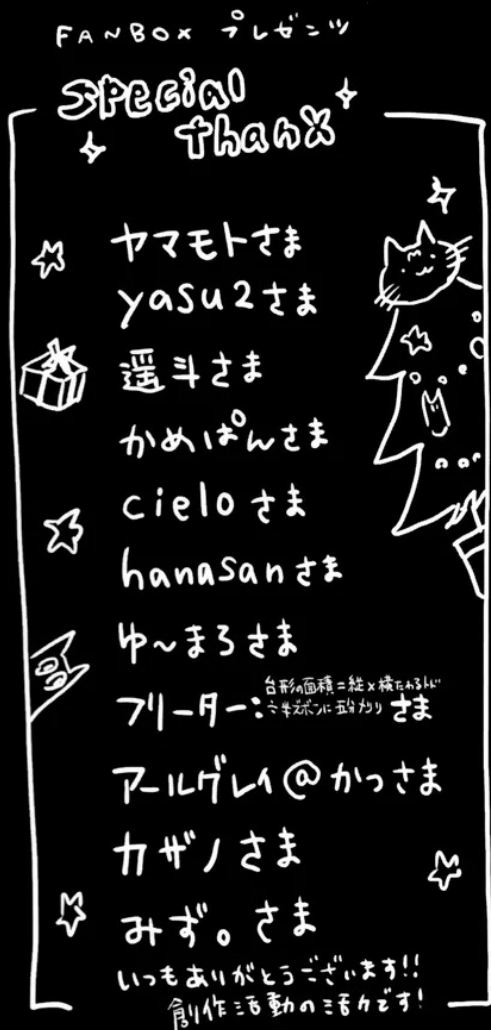 FANBOX プレゼンツ
special
thanX
ヤマモトさま
yasu2さま
遥斗さま
かめぱんさま
cieloさま
hanasanさま
ゆ~まろさま
フリーター:台形の面積=縦×横たわるトド
÷半ズボンに五分刈りさま
アールグレイ@かっさま
カザノさま
みず。さま
いつもありがとうございます!!
創作活動の活力です!